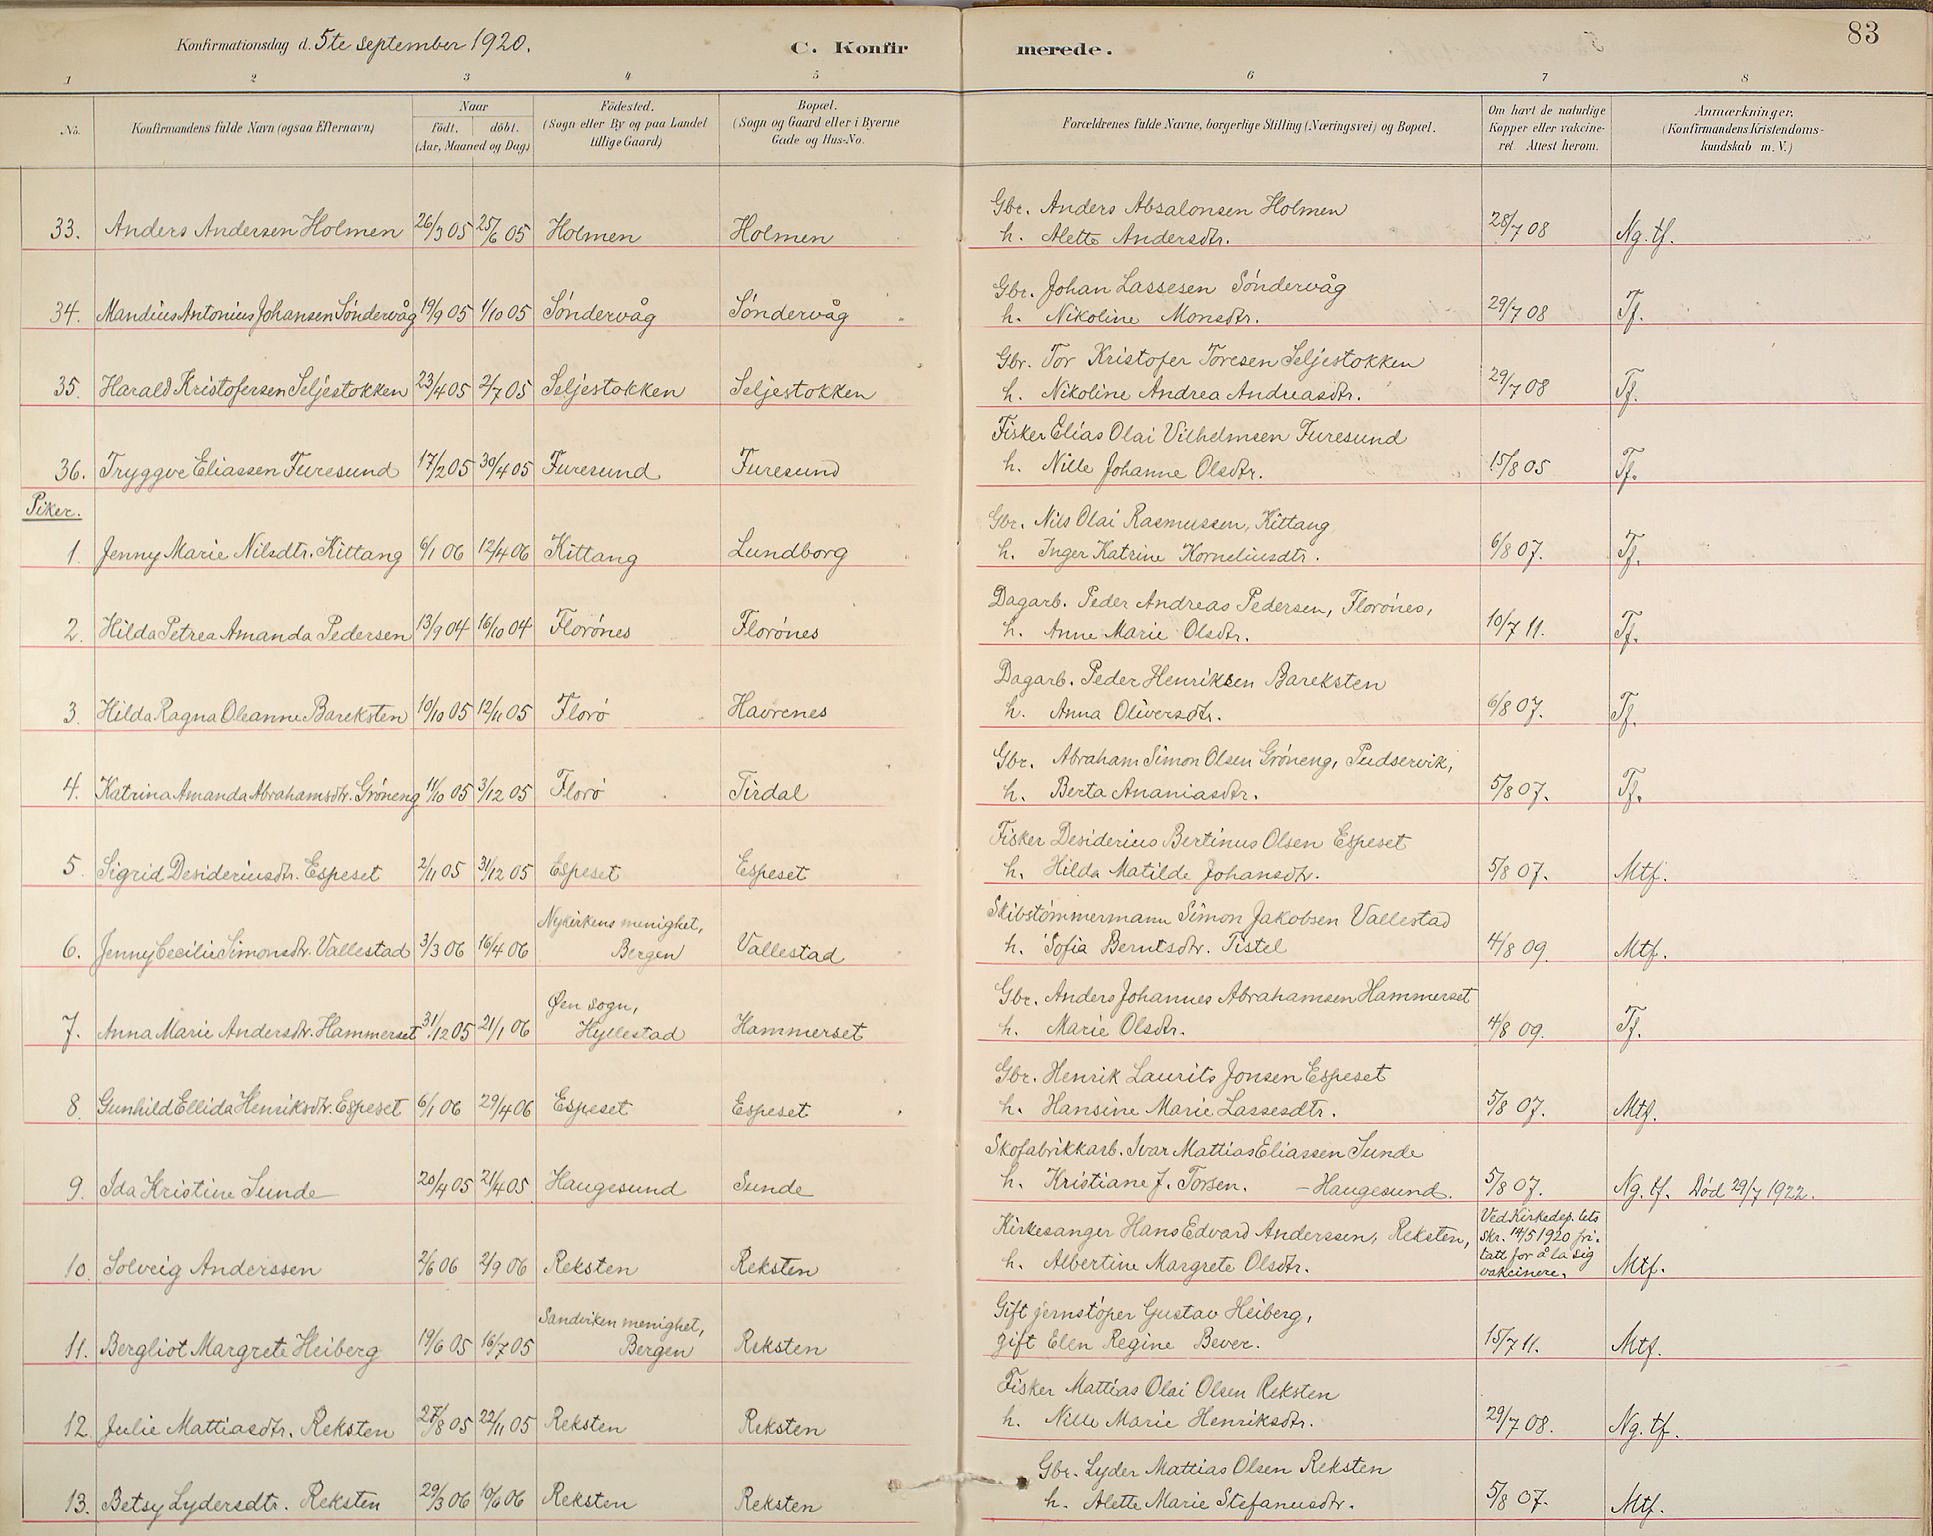 83
Konfirmationsdag d. 5te September 1920. C. Konfirmerede.
1 2 3 4 5 6 7 8
No. Konfirmandens fulde Navn (ogsaa Efternavn) Naar födt. döbt. (Aar, Maaned og Dag) Födested. (Sogn eller By og paa Landet tillige Gaard) Bopæl. (Sogn og Gaard eller i Byerne Gade og Hus-No. Forældrenes fulde Navne, borgerlige Stilling (Næringsvei) og Bopæl. Om havt de naturlige Kopper eller vakcineret. Attest herom. Anmærkninger. (Konfirmandens Kristendomskundskab m. V.)
33. Anders Andersen Holmen 26/3 05 25/6 05 Holmen Holmen Gbr. Anders Absalonsen Holmen
h. Alette Andersdtr. 28/7 08 Ng. tf.
34. Mandius Antonius Johansen Söndervåg 19/9 05 1/10 05 Söndervåg Söndervåg Gbr. Johan Lassesen Söndervåg
h. Nikoline Monsdtr. 29/7 08 Tf.
35. Harald Kristofersen Seljestokken 23/4 05 2/7 05 Seljestokken Seljestokken Gbr. Tor Kristofer Toresen Seljestokken
h. Nikoline Andrea Andreasdtr. 29/7 08 Tf.
36. Tryggve Eliassen Furesund 17/2 05 30/4 05 Furesund Furesund Fisker Elias Olai Vilhelmsen Furesund
h. Nille Johanne Olsdtr. 15/8 05 Tf.
Piker.
1. Jenny Marie Nilsdtr. Kittang 6/1 06 12/4 06 Kittang Lundborg Gbr. Nils Olai Rasmussen, Kittang
h. Inger Katrine Korneliusdtr. 6/8 07. Tf.
2. Hilda Petrea Amanda Pedersen 13/9 04 16/10 04 Florönes Florönes Dagarb. Peder Andreas Pedersen, Florönes,
h. Anne Marie Olsdtr. 10/7 11. Tf.
3. Hilda Ragna Oleanne Bareksten 10/10 05 12/11 05 Florö Havrenes Dagarb. Peder Henriksen Bareksten
h. Anna Oliversdtr. 6/8 07. Tf.
4. Katrina Amanda Abrahamsdtr. Gröneng 11/10 05 3/12 05 Florö Tirdal Gbr. Abraham Simon Olsen Gröneng, Pudservik,
h. Berta Ananiasdtr. 5/8 07. Tf.
5. Sigrid Desideriusdtr. Espeset 2/11 05 31/12 05 Espeset Espeset Fisker Desiderius Bertinus Olsen Espeset
h. Hilda Matilde Johansdtr. 5/8 07. Mtf.
6. Jenny Cecilie Simonsdtr. Vallestad 3/3 06 16/4 06 Nykirkens menighet, Bergen Vallestad Skibstömmermann Simon Jakobsen Vallestad
h. Sofia Berntsdtr. Tistel 4/8 09. Mtf.
7. Anna Marie Andersdtr. Hammerset 31/12 05 21/1 06 Øen sogn, Hyllestad Hammerset Gbr. Anders Johannes Abrahamsen Hammerset
h. Marie Olsdtr. 4/8 09. Tf.
8. Gunhild Ellida Henriksdtr. Espeset 6/1 06 29/4 06 Espeset Espeset Gbr. Henrik Laurits Jonsen Espeset
h. Hansine Marie Lassesdtr. 5/8 07. Mtf.
9. Ida Kristine Sunde 20/4 05 21/4 05. Haugesund Sunde Skofabrikkarb. Ivar Mattias Eliassen Sunde
h. Kristiane J. Torsen. - Haugesund. 5/8 07. Ng. tf. Död 29/7 1922.
10. Solveig Anderssen 2/6 06 2/9 06 Reksten Reksten Kirkesanger Hans Edvard Anderssen, Reksten,
h. Albertine Margrete Olsdtr. Ved Kirkedep.tets skr. 14/5 1920 fritatt for å la sig vakcinere. Mtf.
11. Bergliot Margrete Heiberg 19/6 05 16/7 05 Sandviken menighet, Bergen Reksten Gift jernstöper Gustav Heiberg,
gift Elen Regine Bever. 15/7 11. Mtf.
12. Julie Mattiasdtr. Reksten 27/8 05 22/11 05 Reksten Reksten Fisker Mattias Olai Olsen Reksten
h. Nille Marie Henriksdtr. 29/7 08. Ng. tf.
13. Betsy Lydersdtr. Reksten 29/3 06 10/6 06 Reksten Reksten Gbr. Lyder Mattias Olsen Reksten
h. Alette Marie Stefanusdtr. 5/8 07. Mtf.